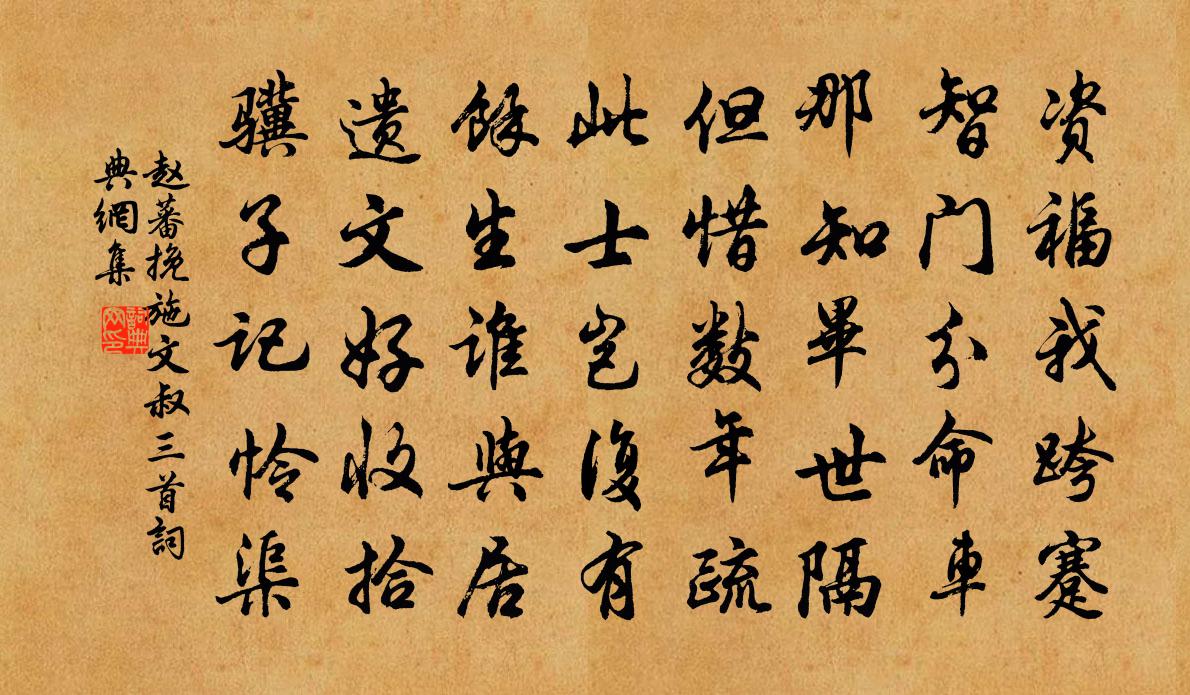 资福我跨蹇
智门分命車
那知畢世隔
但惜数年疏
此士岂復有
餘生谁與居
遗文好收拾
骥子记怜渠
赵蕃挽施文叔三首詞
典網集
詞典
网印